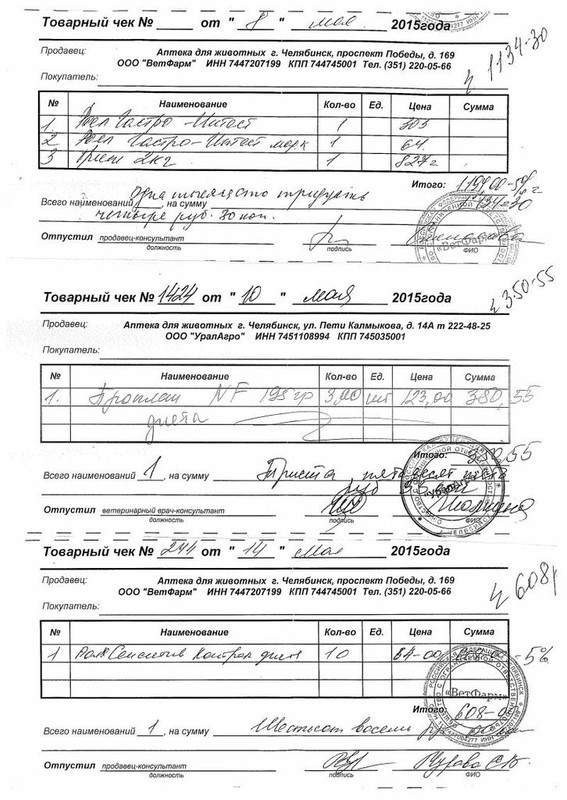 Товарный чек № от " 8 " мая 2015года
1134-30
Продавец: Аптека для животных г. Челябинск, проспект Победы, д. 169
ООО "ВетФарм" ИНН 7447207199 КПП 744745001 Тел. (351) 220-05-66
Покупатель:
№ Наименование Кол-во Ед. Цена Сумма
1. Гастро-Интест 1 303
2 Гастро-Интест 1 64
3 2кг 1 827
Итого: -5%
1134-30
Одна тысяча сто тридцать
Всего наименований , на сумму
четыре руб. 30 коп.
Отпустил продавец-консультант
должность подпись ФИО
«ВетФарм»
Товарный чек № 1424 от " 10 " мая 2015года
350-55
Продавец: Аптека для животных г. Челябинск, ул. Пети Калмыкова, д. 14А т 222-48-25
ООО "УралАгро" ИНН 7451108994 КПП 745035001
Покупатель:
№ Наименование Кол-во Ед. Цена Сумма
1. Проплан NF 195гр 3,00 шт 123,00 350,55
диета
Итого:
Всего наименований 1 , на сумму Триста пятьдесят
Отпустил ветеринарный врач-консультант
должность подпись ФИО
Товарный чек № 244 от " 14 " мая 2015года
608
Продавец: Аптека для животных г. Челябинск, проспект Победы, д. 169
ООО "ВетФарм" ИНН 7447207199 КПП 744745001 Тел. (351) 220-05-66
Покупатель:
№ Наименование Кол-во Ед. Цена Сумма
1 Контрол 10 64-00 -5%
«ВетФарм»
Итого: 608-00
Всего наименований 1 , на сумму Шестьсот восемь
Отпустил продавец-консультант
должность подпись ФИО